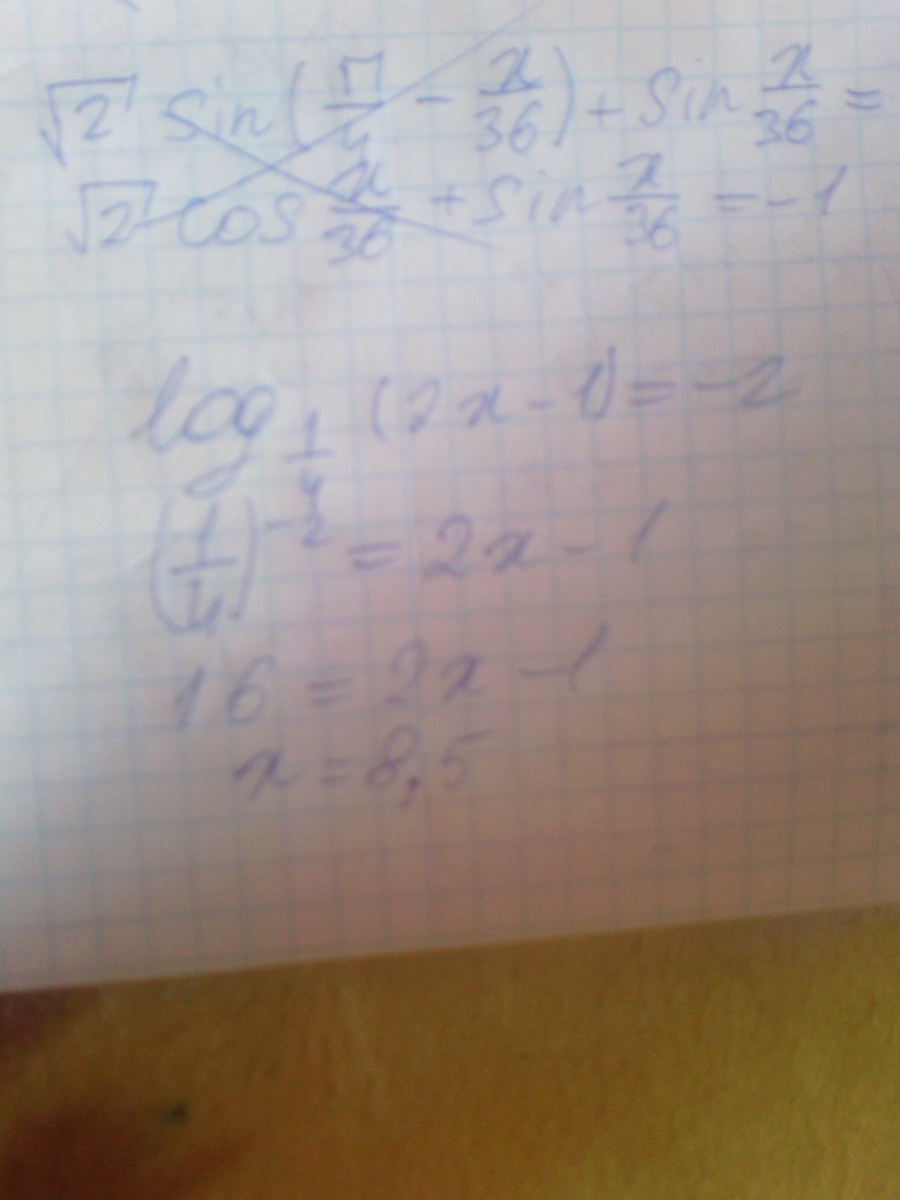 √2 sin(π/4 - x/36) + sin x/36 =
√2 cos x/36 + sin x/36 = -1
log_{1/4} (2x - 1) = -2
(1/4)^{-2} = 2x - 1
16 = 2x - 1
x = 8,5